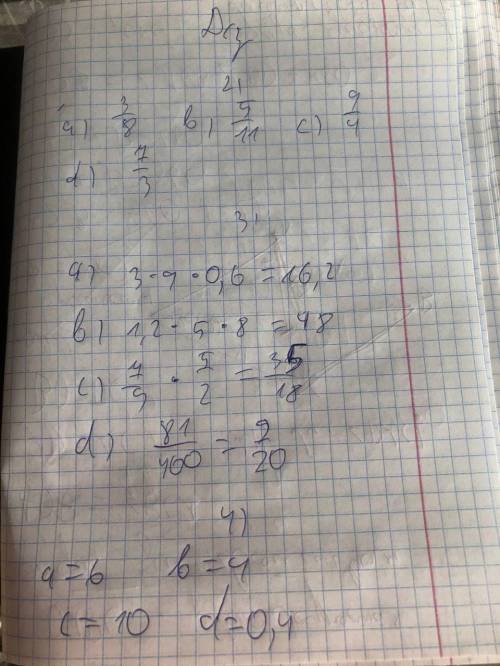 Дз
2)
a) 3/8 b) 5/11 c) 9/4
d) 7/3
3)
a) 3·9·0,6 = 16,2
b) 1,2·5·8 = 48
c) 7/9 · 5/2 = 35/18
d) 81/400 = 9/20
4)
a=6 b=4
c=10 d=0,4